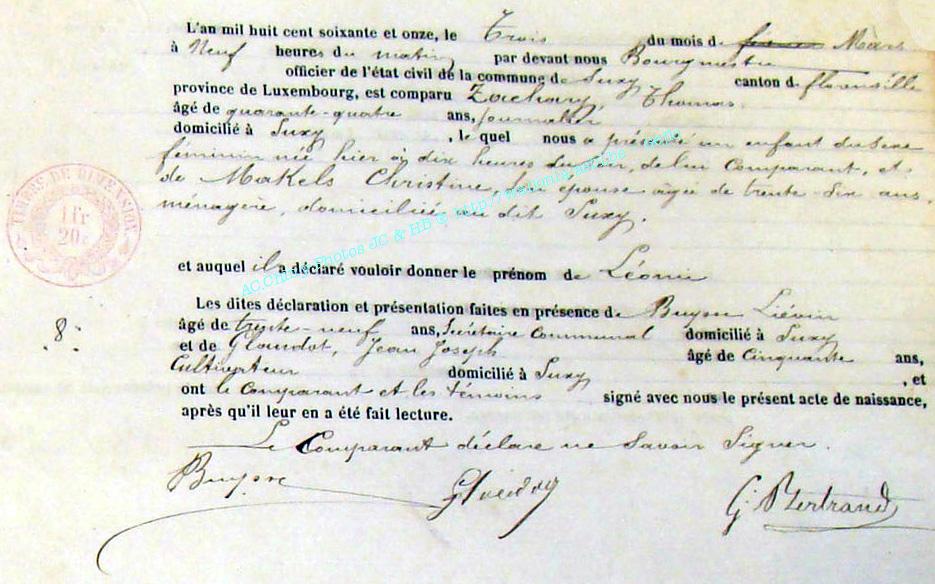 L'an mil huit cent soixante et onze, le Trois du mois de Mars
à Neuf heures du matin par devant nous Bourgmestre
officier de l'état civil de la commune de Suxy canton d. florenville
province de Luxembourg, est comparu Zachary, Thomas.
âgé de quarante-quatre ans, Journalier
domicilié à Suxy, le quel nous a présenté un enfant du Sexe
féminin née hier à dix heures du soir, de lui Comparant, et
de Makels Christine, son épouse agée de trente-six ans,
ménagère, domiciliée au dit Suxy.
TIMBRE DE DIMENSION
1 Fr
20 c
et auquel il a déclaré vouloir donner le prénom de Léonie
Les dites déclaration et présentation faites en présence de Buysse Liévin
âgé de trente-neuf ans, Secrétaire Communal domicilié à Suxy
.8.
et de Glaudot, Jean Joseph âgé de Cinquante ans,
Cultivateur domicilié à Suxy, et
ont le Comparant et les témoins signé avec nous le présent acte de naissance,
après qu'il leur en a été fait lecture.
Le Comparant déclare ne Savoir Signer.
Buysse Glaudot G. Bertrand
AC Chiny Photos JC & HB @ http://